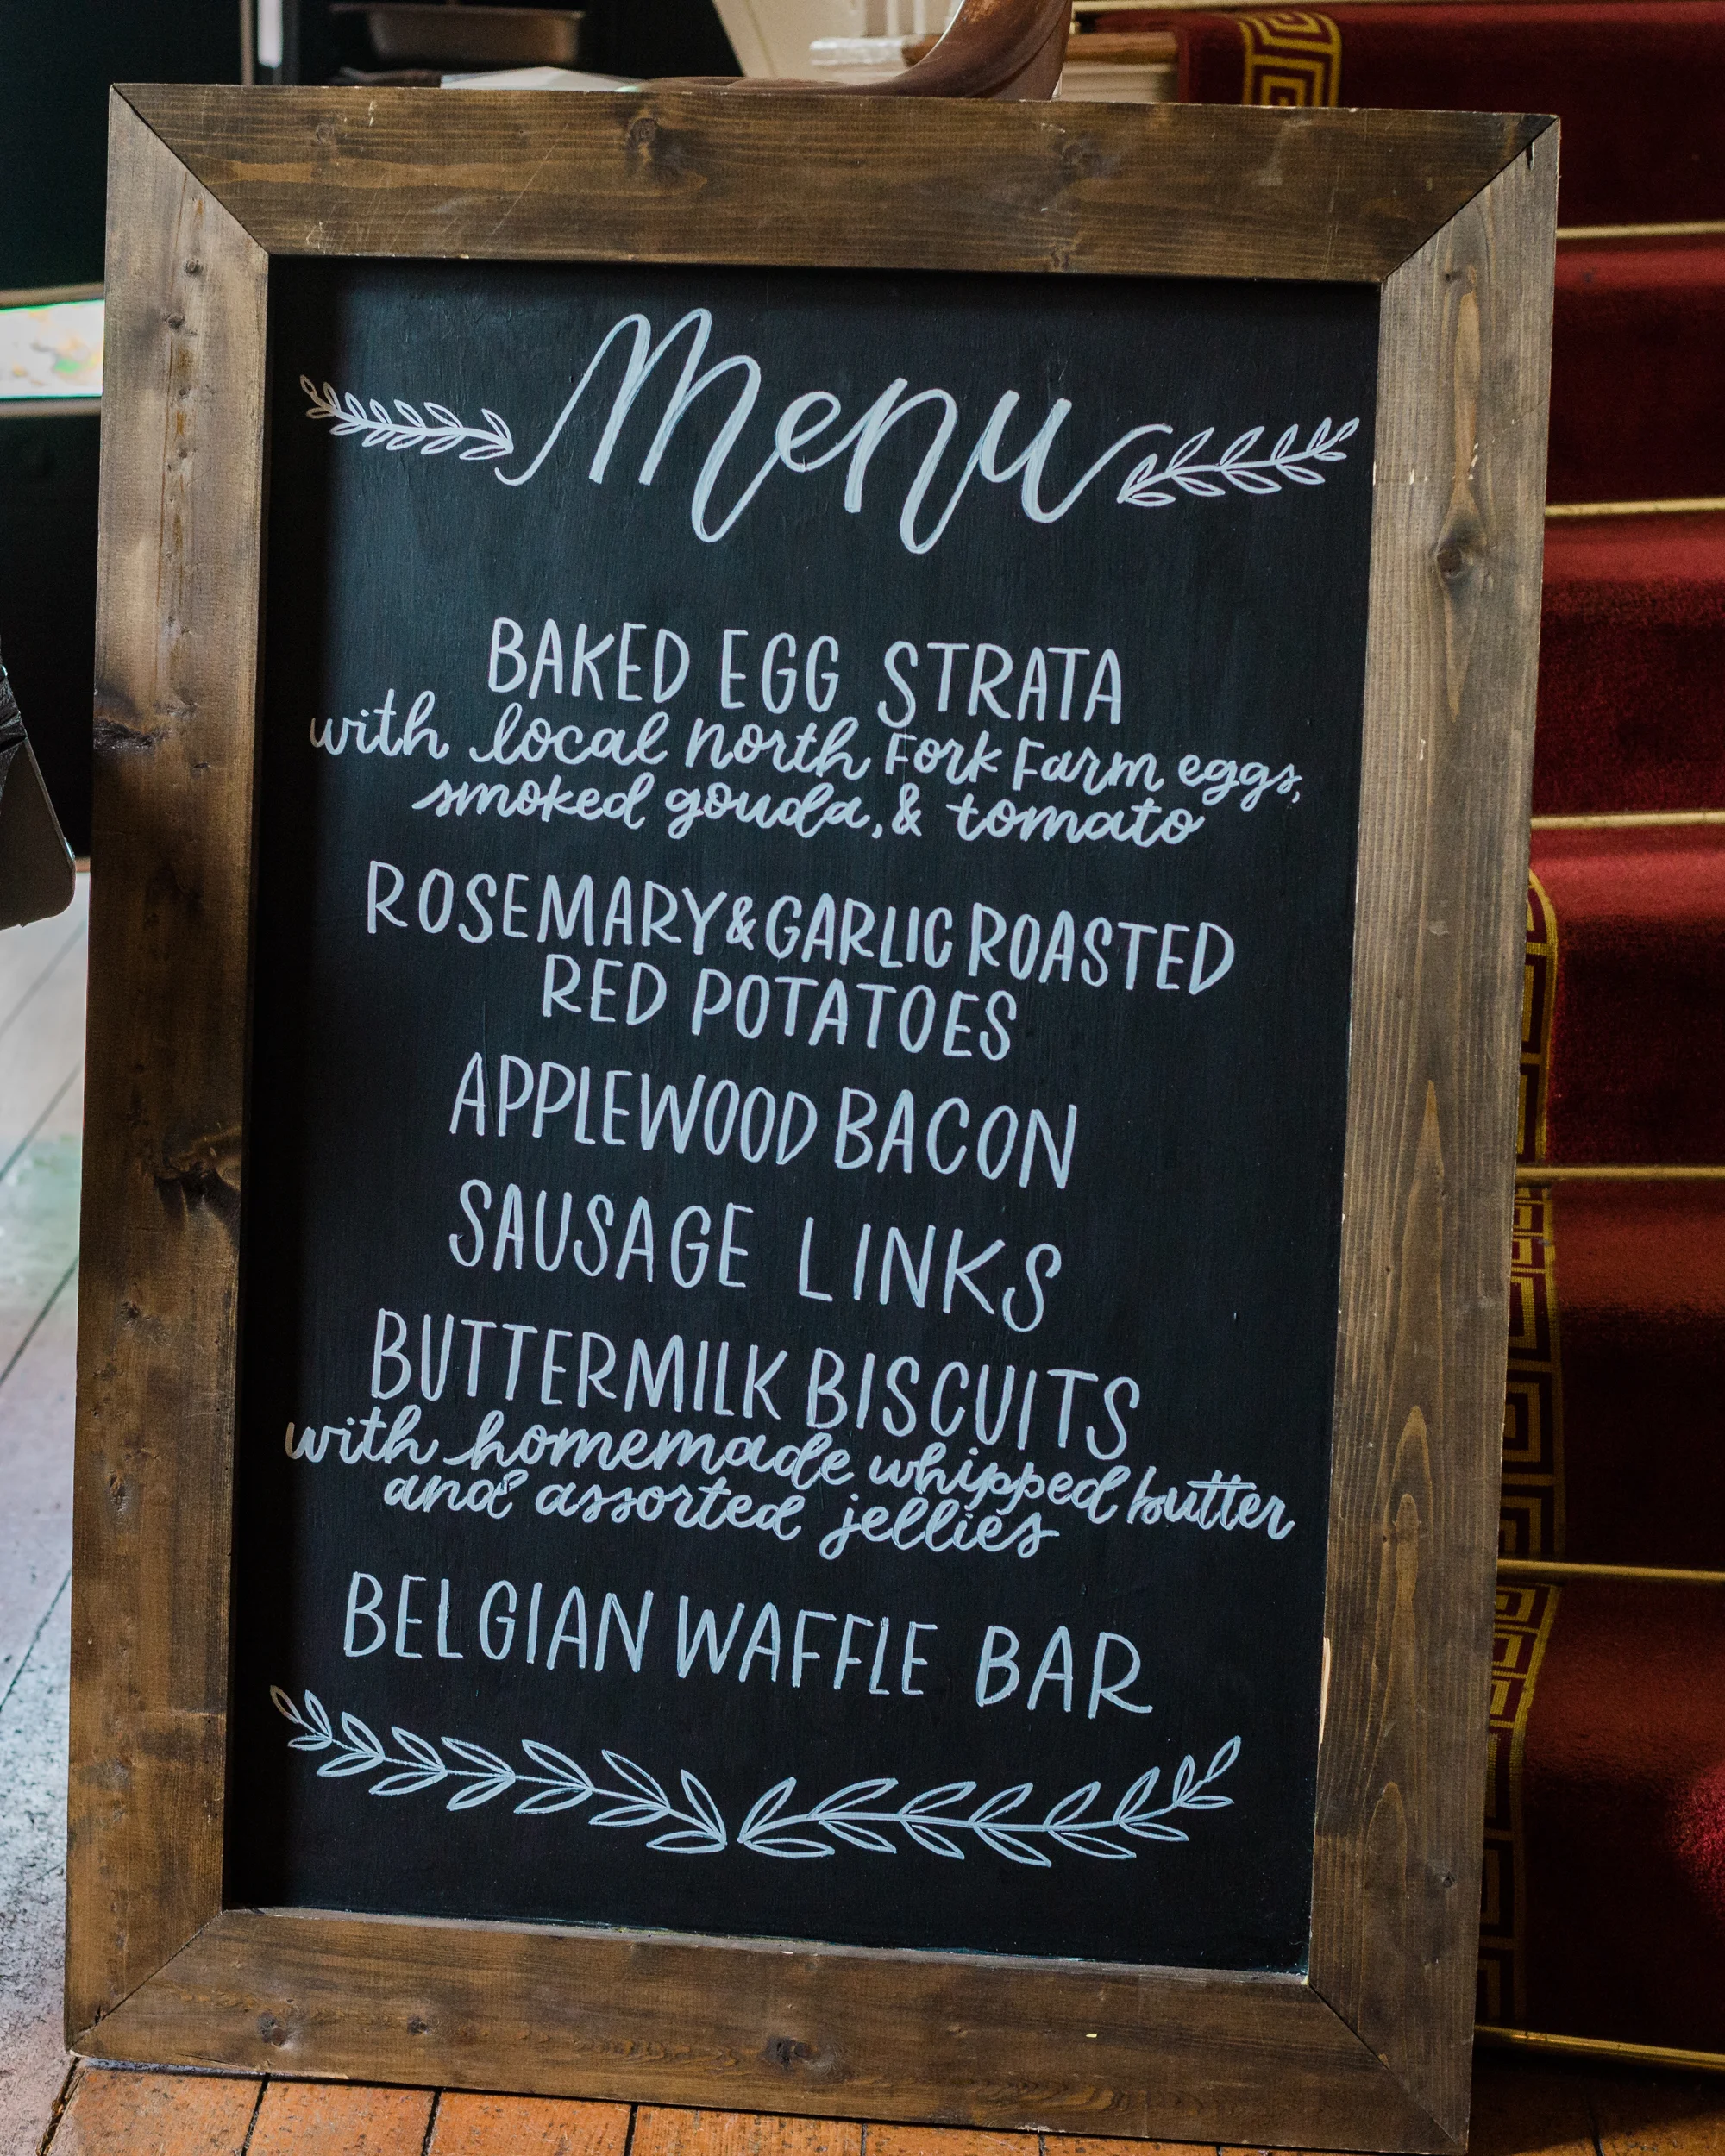 Menu
BAKED EGG STRATA
with local north Fork Farm eggs,
smoked gouda, & tomato
ROSEMARY & GARLIC ROASTED
RED POTATOES
APPLEWOOD BACON
SAUSAGE LINKS
BUTTERMILK BISCUITS
with homemade whipped butter
and assorted jellies
BELGIAN WAFFLE BAR